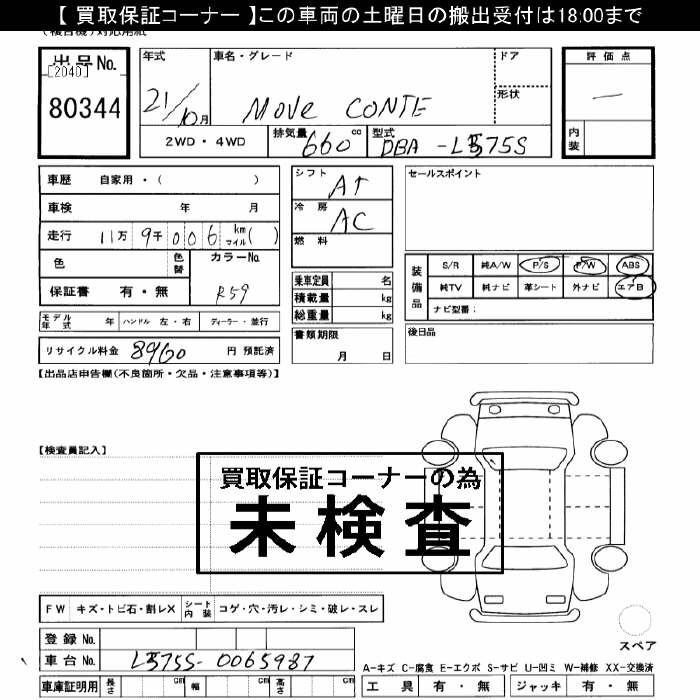 【 買取保証コーナー 】この車両の土曜日の搬出受付は18:00まで
(複合機)対応用紙
出品No.
[2040]
80344
年式
21/10月
車名・グレード
MOVe CONTE
ドア
形状
評価点
—
内装
2WD・4WD
排気量
660cc
型式
DBA-L575S
車歴 自家用・( )
車検 年 月
走行 11万 9千 0 0 6 km マイル( )
色
色替
カラーNo.
R59
保証書 有・無
モデル年式 年 ハンドル 左・右 ディーラー・並行
リサイクル料金 8960 円 預託済
シフト AT
冷房 AC
燃料
乗車定員 名
積載量 kg
総重量 kg
書類期限
月 日
セールスポイント
装備品
S/R 純A/W P/S P/W ABS
純TV 純ナビ 革シート 外ナビ エアB
ナビ型番:
後日品
【出品店申告欄(不良箇所・欠品・注意事項等)】
【検査員記入】
買取保証コーナーの為
未検査
FW キズ・トビ石・割レX シート内装 コゲ・穴・汚レ・シミ・破レ・スレ
登録No.
車台No. L575S-0065987
車庫証明用 長さ cm 幅 cm 高さ cm
スペア
A-キズ C-腐食 E-エクボ S-サビ U-凹ミ W-補修 XX-交換済
工具 有・無 ジャッキ 有・無